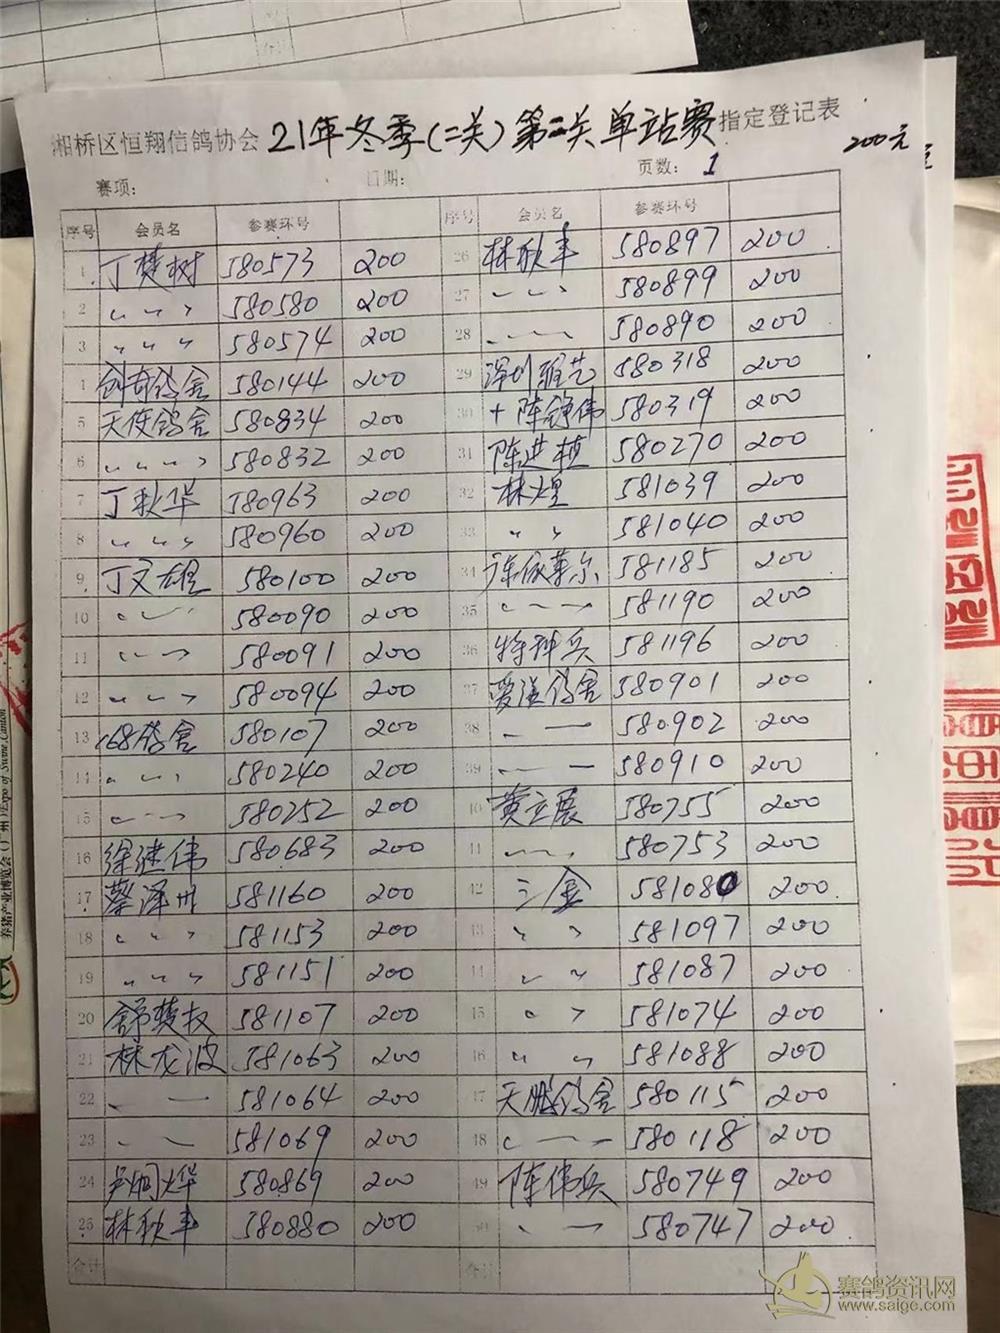 湘桥区恒翔信鸽协会 21年冬季(二关)第二关单站赛 指定登记表
200元
赛项: 日期: 页数: 1
序号 会员名 参赛环号 序号 会员名 参赛环号
1 丁楚树 580573 200 26 林秋丰 580897 200
2 〃 〃 〃 580580 200 27 〃 〃 〃 580899 200
3 〃 〃 〃 580574 200 28 580890 200
4 创奇鸽舍 580144 200 29 深圳雅艺 580318 200
5 天使鸽舍 580834 200 30 +陈铮伟 580319 200
6 〃 〃 〃 〃 580832 200 31 陈进植 580270 200
7 丁秋华 580963 200 32 林煌 581039 200
8 〃 〃 〃 580960 200 33 〃 〃 581040 200
9 丁文雄 580100 200 34 581185 200
10 580090 200 35 581190 200
11 580091 200 36 特种兵 581196 200
12 〃 〃 〃 580094 200 37 鸽舍 580901 200
13 168鸽舍 580107 200 38 580902 200
14 580240 200 39 580910 200
15 580252 200 40 黄立展 580755 200
16 徐继伟 580683 200 41 580753 200
17 蔡泽州 581160 200 42 三金 581080 200
18 〃 〃 〃 581153 200 43 〃 〃 581097 200
19 〃 〃 〃 581151 200 44 〃 〃 581087 200
20 舒楚权 581107 200 45 〃 〃 581074 200
21 林龙波 581063 200 46 〃 〃 581088 200
22 581064 200 47 天鹏鸽舍 580115 200
23 581069 200 48 580118 200
24 卢炯烨 580869 200 49 陈伟兵 580749 200
25 林秋丰 580880 200 50 580747 200
合计 合计
养猪产业博览会(广州)/Expo of Swine,Canton
赛鸽资讯网
www.saige.com